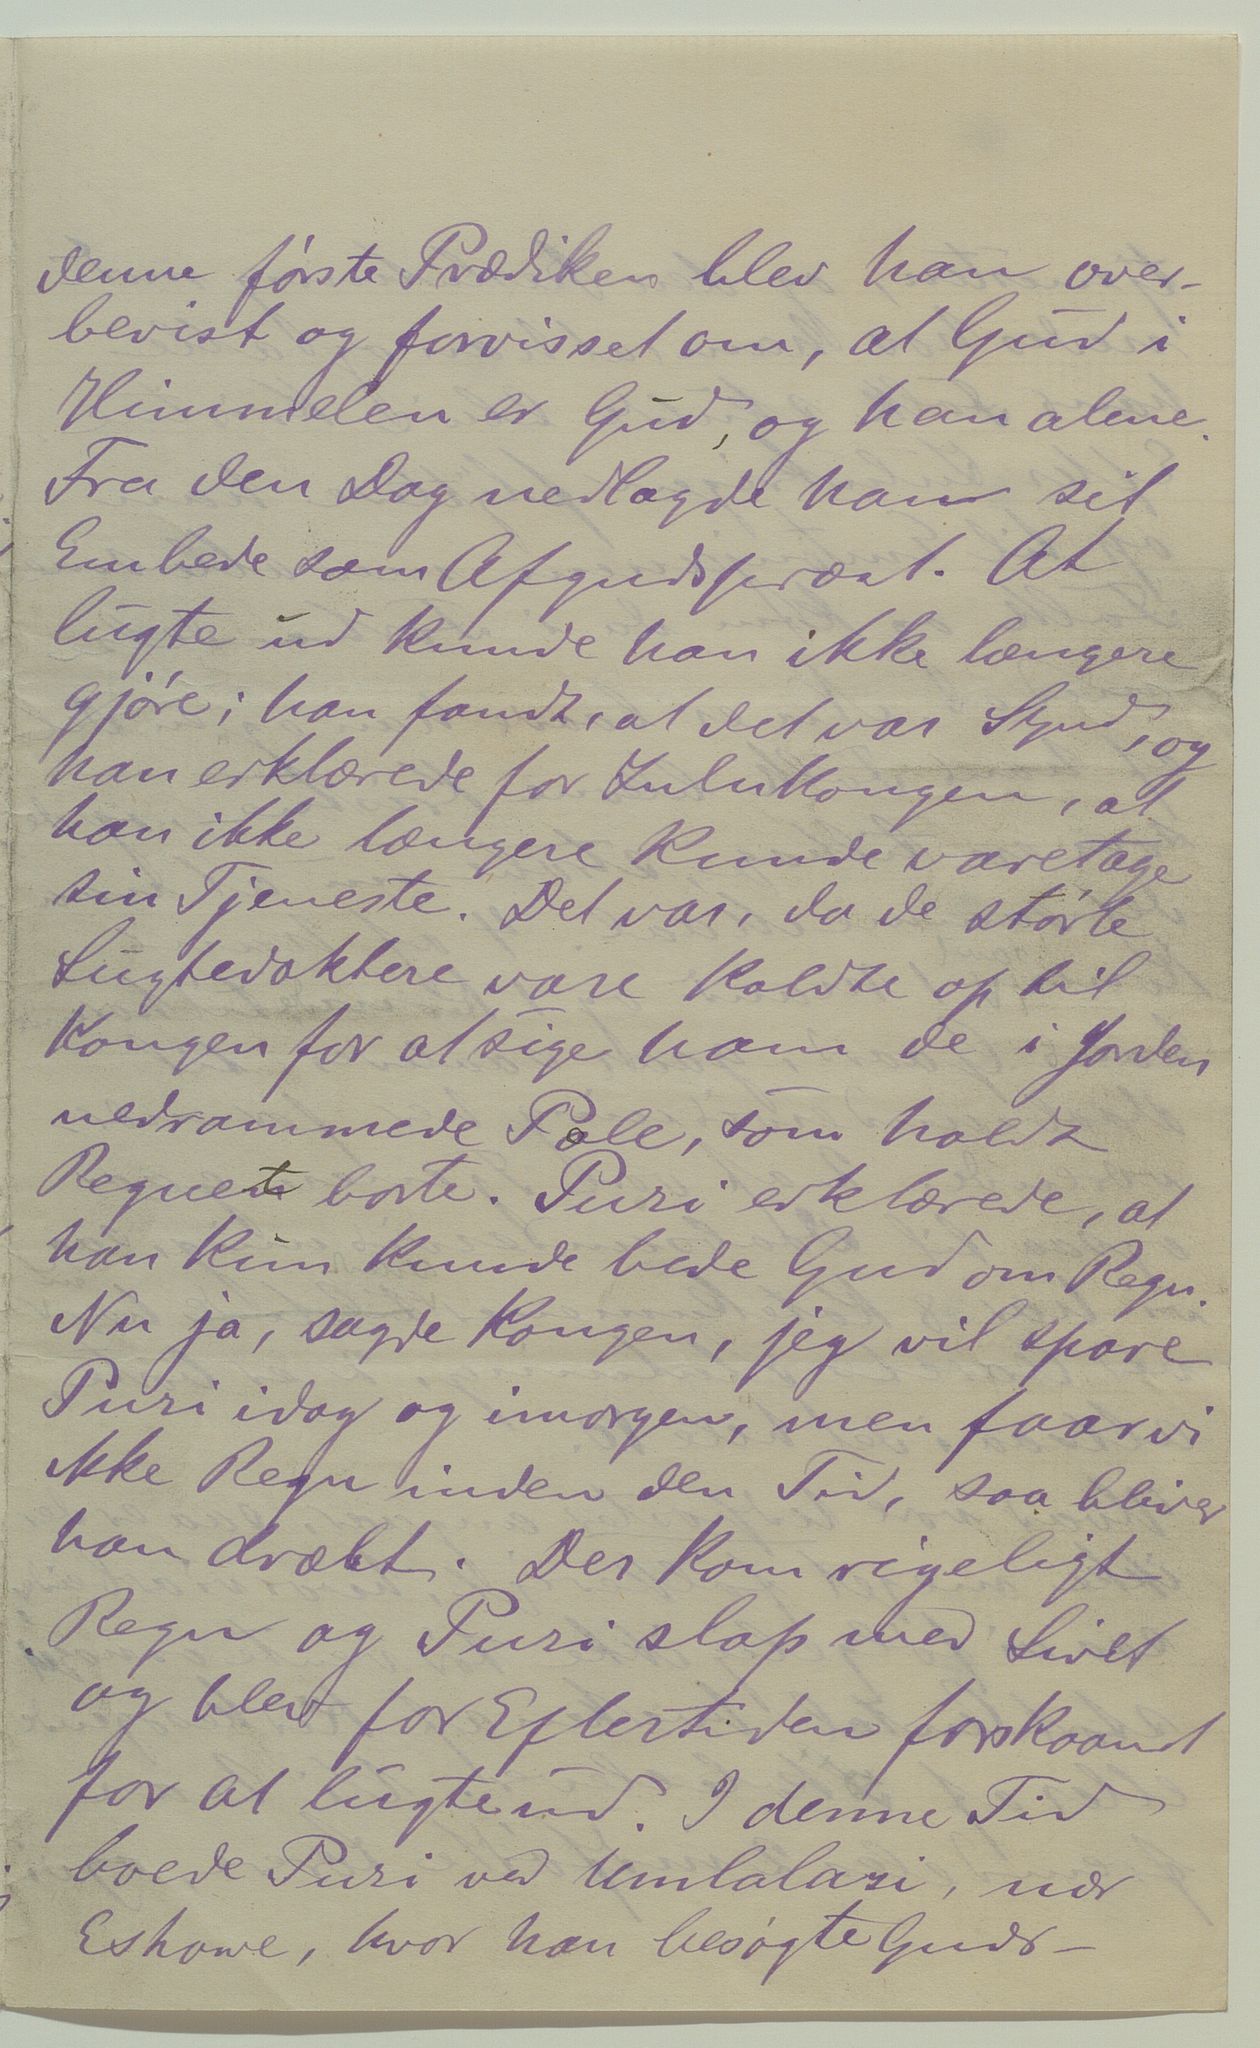 denne første Prædiken blev han over-
bevist og forvisset om, at Gud i
Himmelen er Gud, og han alene.
Fra den Dag nedlagde han sit
Embede som Afgudspræst. At
lugte ud kunde han ikke længere
gjøre; han fandt, at det var Synd, og
han erklærede for Zulukongen, at
han ikke længere kunde varetage
sin Tjeneste. Det var, da de større
Lugtedoktere vare kaldte op til
Kongen for at sige ham de i Jorden
nedrammede Pæle, som holdt
Regnen borte. Puzi erklærede, at
han kun kunde bede Gud om Regn.
Nu ja, sagde Kongen, jeg vil spare
Puzi idag og imorgen, men faar vi
ikke Regn inden den Tid, saa bliver
han dræbt. Der kom rigeligt
Regn og Puzi slap med Livet
og blev for Eftertiden forskaanet
for at lugte ud. I denne Tid
boede Puzi ved Umlalazi, nær
Eshowe, hvor han besøgte Guds-